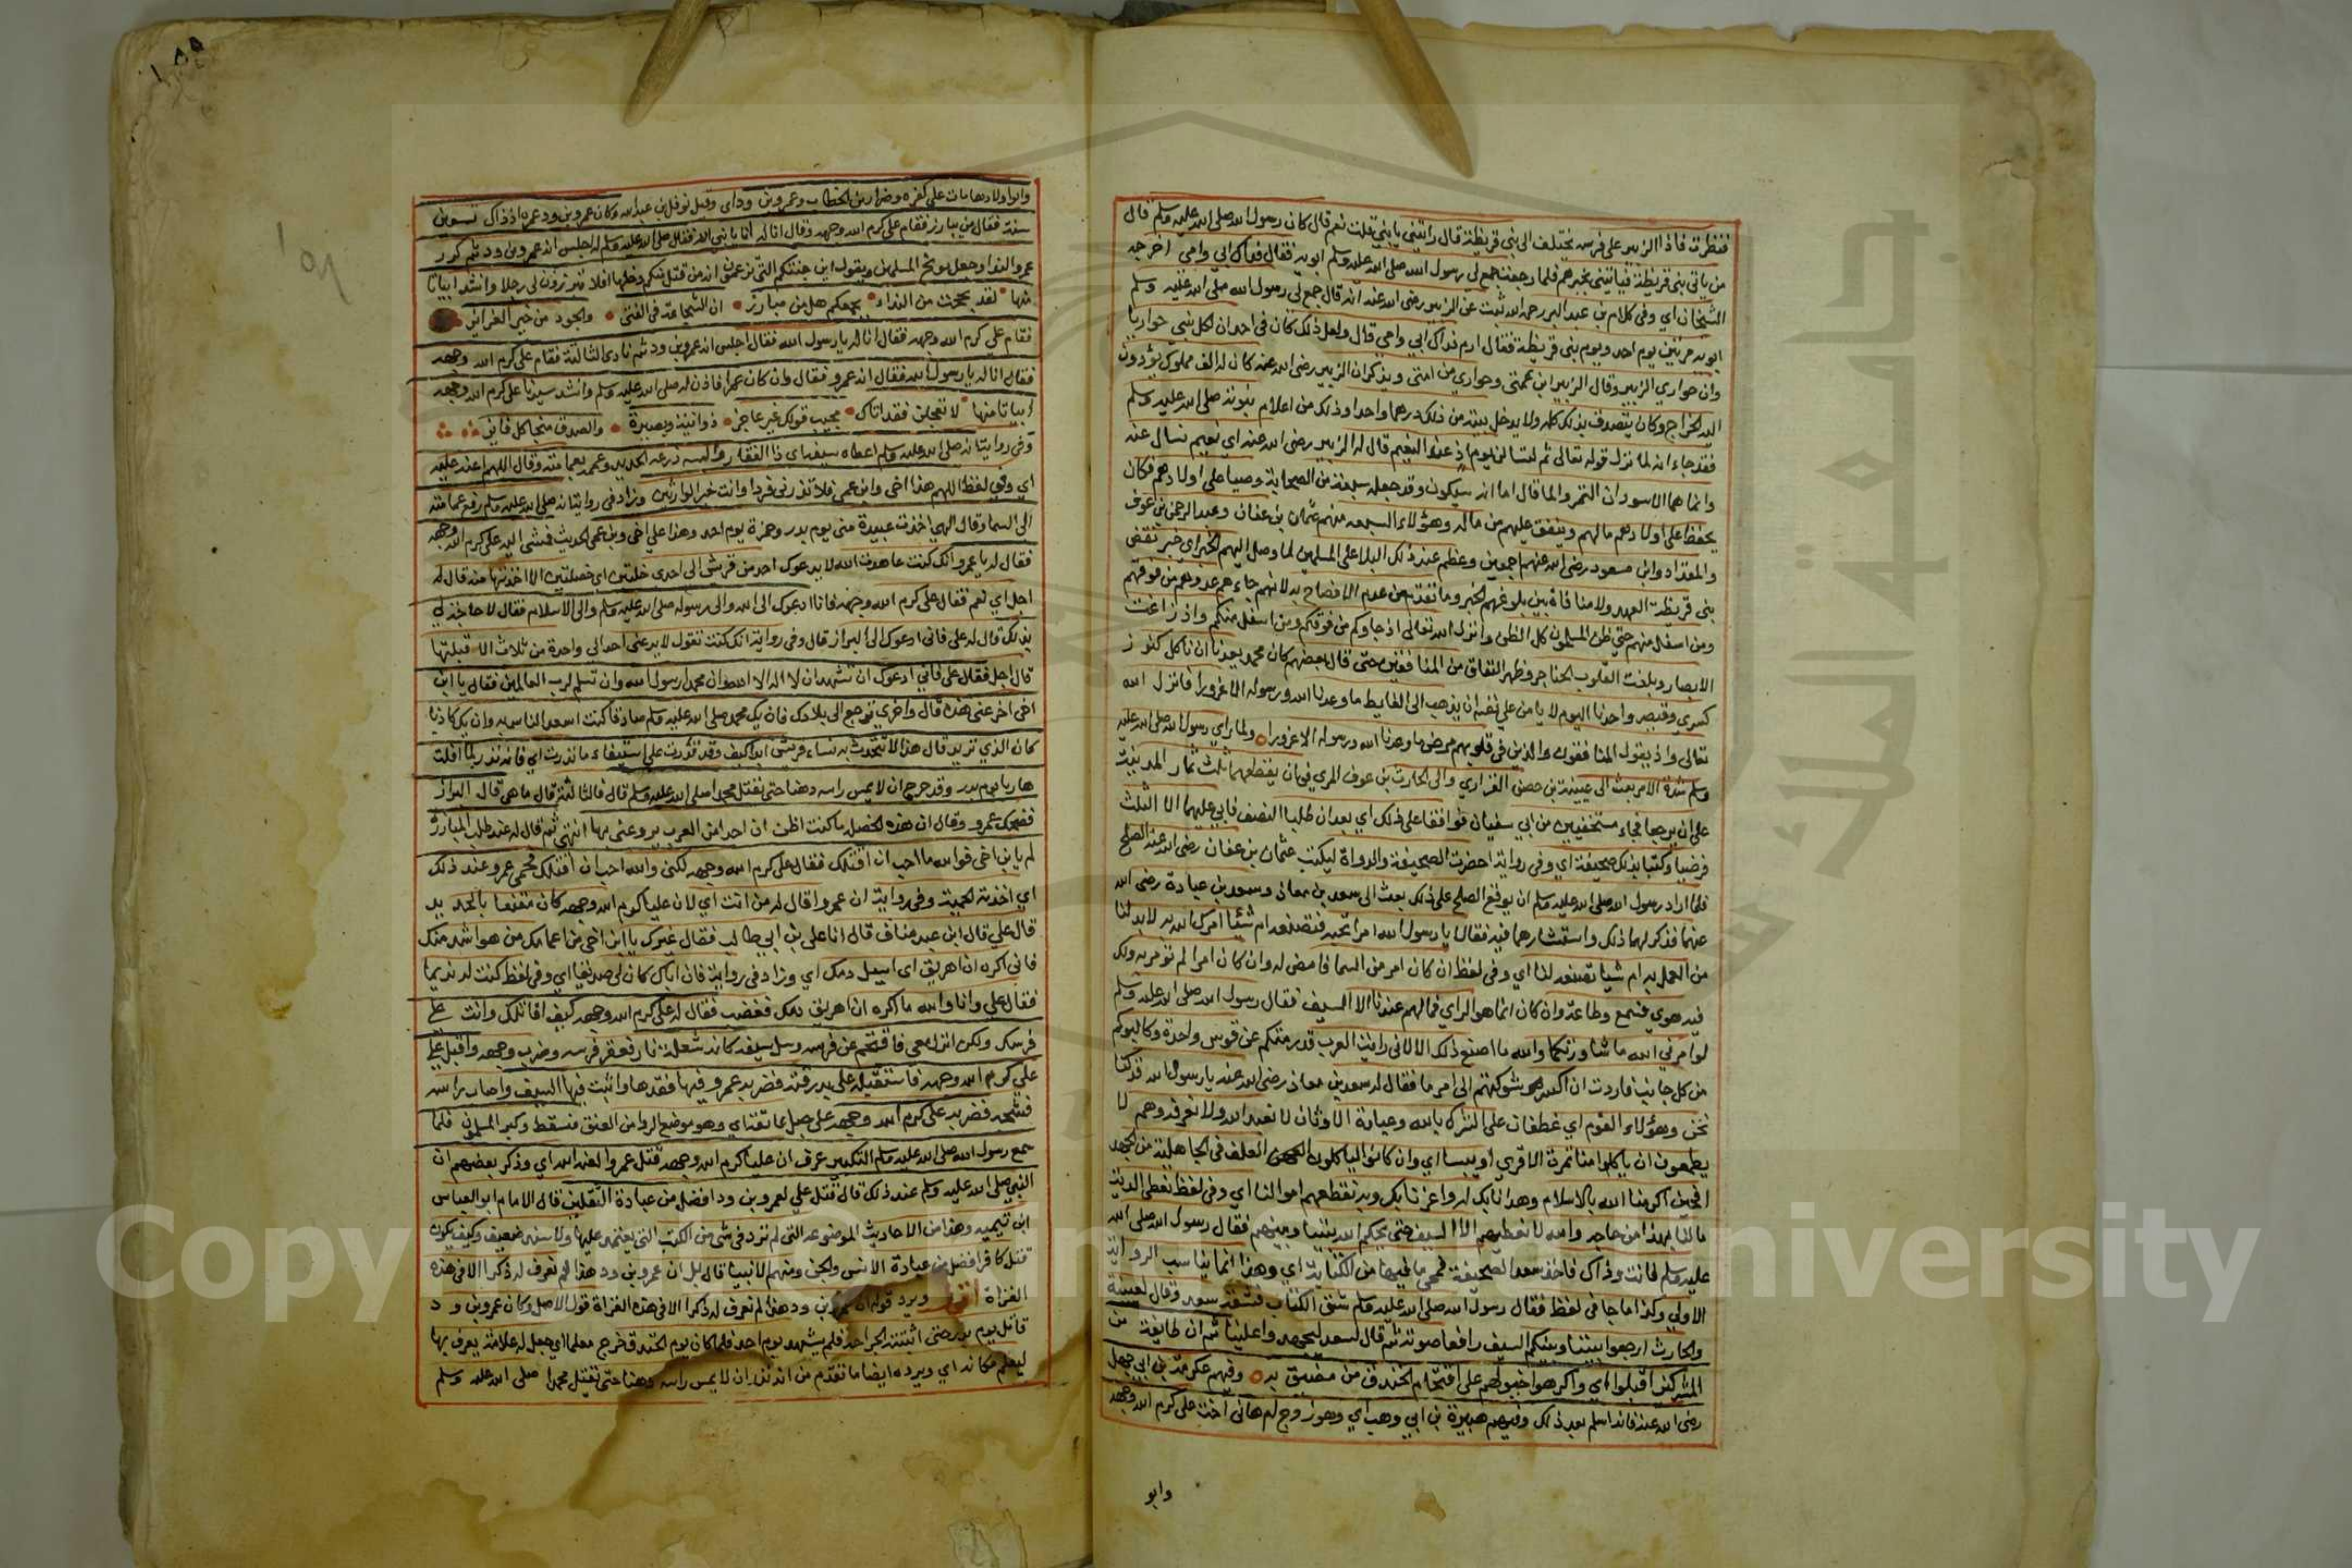 فنظرت فاذا الزبير على فرسه يختلف الى بني قريظة قال رايتني يا بني قلت نعم قال كان رسول الله صلى الله عليه وسلم قال
من ياتي بني قريظة فياتيني بخبرهم فلما رجعت جمع لي رسول الله صلى الله عليه وسلم ابويه فقال فداك ابي وامي اخرجه
الشيخان اي وفي كلام بن عبد البر رحمه الله ثبت عن الزبير رضي الله عنه انه قال جمع لي رسول الله صلى الله عليه وسلم
ابويه مرتين يوم احد ويوم بني قريظة فقال ارم فداك ابي وامي قال ولعل ذلك كان في احد ان لكل نبي حواريا
وان حواري الزبير وقال الزبير ابن عمتي وحواري من امتي ويذكر ان الزبير رضي الله عنه كان له الف مملوك يؤدون
اليه الخراج وكان يتصدق بذلك كله ولا يدخل بيته من ذلك درهما واحدا وذلك من اعلام نبوته صلى الله عليه وسلم
فقد جاء انه لما نزل قوله تعالى ثم لتسالن يومئذ عن النعيم قال له الزبير رضي الله عنه اي نعيم نسال عنه
وانما هما الاسودان التمر والما قال اما انه سيكون وقد جعله سبعة من الصحابة وصيا على اولادهم فكان
يحفظ على اولادهم مالهم وينفق عليهم من ماله وهؤلاء السبعه منهم عثمان بن عفان وعبد الرحمن بن عوف
والمقداد وابن مسعود رضي الله عنهم اجمعين وعظم عند ذلك البلا على المسلمين لما وصل اليهم الخبر اي خبر نقض
بني قريظة العهد ولا منافاة بين بلوغهم الخبر وما تقدم من عدم الافصاح به لانهم جاءهم عدوهم من فوقهم
ومن اسفل منهم حتى ظن المسلمون كل الظن وانزل الله تعالى اذ جاوكم من فوقكم ومن اسفل منكم واذ زاغت
الابصار وبلغت القلوب الحناجر وظهر النفاق من المنافقين حتى قال بعضهم كان محمد يعدنا ان ناكل كنوز
كسرى وقيصر واحدنا اليوم لا يامن على نفسه ان يذهب الى الغايط ما وعدنا الله ورسوله الا غرورا فانزل الله
تعالى واذ يقول المنافقون والذين في قلوبهم مرض ما وعدنا الله ورسوله الا غرورا ولما راى رسول الله صلى الله عليه
وسلم شدة الامر بعث الى عيينة بن حصن الفزاري والى الحارث بن عوف المري في ان يقطعهما ثلث ثمار المدينة
على ان يرجعا فجاء مستخفيين من ابي سفيان فوافقا على ذلك اي بعد ان طلبا النصف فابى عليهما الا الثلث
فرضيا وكتبا بذلك صحيفة اي وفي رواية احضرت الصحيفة والدواة ليكتب عثمان بن عفان رضي الله عنه الصلح
فلما اراد رسول الله صلى الله عليه وسلم ان يوقع الصلح على ذلك بعث الى سعد بن معاذ وسعد بن عبادة رضي الله
عنهما فذكر لهما ذلك واستشارهما فيه فقالا يا رسول الله امرا تحبه فنصنعه ام شيئا امرك الله به لا بد لنا
من العمل به ام شيا تصنعه لنا اي وفي لفظ ان كان امر من السما فامض له وان كان امرا لم تؤمر به ولك
فيه هوى فسمع وطاعة وان كان انما هو الراي فما لهم عندنا الا السيف فقال رسول الله صلى الله عليه وسلم
لو امرني الله ما شاورتكما والله ما اصنع ذلك الا لاني رايت العرب قد رمتكم عن قوس واحدة وكالبوكم
من كل جانب فاردت ان اكسر شوكتهم الى امر ما فقال له سعد بن معاذ رضي الله عنه يا رسول الله قد كنا
نحن وهؤلاء القوم اي غطفان على الشرك بالله وعبادة الاوثان لا نعبد الله ولا نعرفه وهم لا
يطمعون ان ياكلوا منا تمرة الا قرى او بيعا اي وان كانوا لياكلون العلف في الجاهلية من الجهد
افحين اكرمنا الله بالاسلام وهدانا بك له واعزنا بك وبه نقطعهم اموالنا اي وفي لفظ نعطي الدنية
ما لنا بهذا من حاجه والله لا نعطيهم الا السيف حتى يحكم الله بيننا وبينهم فقال رسول الله صلى الله
عليه وسلم فانت وذاك فاخذ سعد الصحيفة فمحى ما فيها من الكتابة اي وهذا انما يناسب الرواية
الاولى وكذا ما جا في لفظ فقال رسول الله صلى الله عليه وسلم شق الكتاب فشقه سعد وقال لعيينة
والحارث ارجعوا بيننا وبينكم السيف رافعا صوته ثم قال لسعد ثم ان طايفة من
المشركين اقبلوا اي واكرهوا خيولهم على اقتحام الخندق من مضيق به وفيهم عكرمة بن ابي جهل
رضي الله عنه فانه اسلم بعد ذلك وفيهم هبيرة بن ابي وهب اي وهو زوج ام هانى اخت على كرم الله وجهه
وابو
١٥٥
وابو اولادها مات على كفره وضرار بن الخطاب وعمرو بن ود اي وقيل نوفل بن عبد الله وكان عمرو بن ود عمره اذ ذاك تسعين
سنة فقال من يبارز فقام على كرم الله وجهه وقال انا له يا نبي الله فقال صلى الله عليه وسلم له اجلس انه عمرو بن ود ثم كرر
عمرو الندا وجعل يوبخ المسلمين ويقول اين جنتكم التي تزعمون انه من قتل منكم دخلها افلا تبرزون لي رجلا وانشد ابياتا
منها لقد بححت من النداء بجمعكم هل من مبارز ان الشجاعة في الفتى والجود من خير الغرايز
فقام علي كرم الله وجهه فقال انا له يا رسول الله فقال اجلس انه عمرو بن ود ثم نادى الثالثة فقام على كرم الله وجهه
فقال انا له يا رسول الله فقال انه عمرو فقال وان كان عمرا فاذن له صلى الله عليه وسلم وانشد سيدنا على كرم الله وجهه
ابياتا منها لا تعجلن فقد اتاك مجيب قولك غير عاجز ذو انية وبصيرة والصدق منجا كل فايز
وفي رواية انه صلى الله عليه وسلم اعطاه سيفه اي ذا الفقار والبسه درعه الحديد وعممه بعمامته وقال اللهم اعنه عليه
اي وفي لفظ اللهم هذا اخي وابن عمي فلا تذرني فردا وانت خير الوارثين وزاد في رواية انه صلى الله عليه وسلم رفع عمامته
الى السما وقال الهي اخذت عبيدة مني يوم بدر وحمزة يوم احد وهذا علي اخي وبن عمي الحديث فمشى اليه على كرم الله وجهه
فقال له يا عمرو انك كنت عاهدت الله لا يدعوك احد من قريش الى احدى خلتين اي خصلتين الا اخذتها منه قال له
اجل اي نعم فقال على كرم الله وجهه فانا ادعوك الى الله والى رسوله صلى الله عليه وسلم والى الاسلام فقال لا حاجة لي
بذلك قال له على فاني ادعوك الى البراز قال وفي رواية انك كنت تقول لا يدعني احد الى واحدة من ثلاث الا قبلتها
قال اجل فقال على فاني ادعوك ان تشهد ان لا اله الا الله وان محمدا رسول الله وان تسلم لرب العالمين فقال يا ابن
اخي اخر عني هذه قال واخرى ترجع الى بلادك فان يك محمد صلى الله عليه وسلم صادقا كنت اسعد الناس به وان يك كاذبا
كان الذي تريد قال هذا لا تتحدث به نساء قريش ابدا كيف وقد قدرت على استيفاء ما نذرت اي فانه نذر لما افلت
هاربا يوم بدر وقد جرح ان لا يمس راسه دهنا حتى يقتل محمدا صلى الله عليه وسلم قال فالثالثة قال ما هي قال البراز
فضحك عمرو وقال ان هذه لخصلة ما كنت اظن ان احدا من العرب يروعني بها انتهى ثم قال له عند طلب المبارزة
لم يا بن اخي فوالله ما احب ان اقتلك فقال على كرم الله وجهه لكني والله احب ان اقتلك فحمي عمرو عند ذلك
اي اخذته الحمية وفي رواية ان عمروا قال له من انت اي لان عليا كرم الله وجهه كان مقنعا بالحديد
قال علي قال ابن عبد مناف قال انا على بن ابي طالب فقال غيرك يا ابن اخي من اعمامك من هو اشد منك
فاني اكره ان اهريق اي اسيل دمك اي وزاد في رواية فان اباك كان لي صديقا اي وفي لفظ كنت له نديما
فقال على وانا والله ما اكره ان اهريق دمك فغضب فقال له على كرم الله وجهه كيف اقاتلك وانت على
فرسك ولكن انزل معي فاقتحم عن فرسه وسل سيفه كانه شعلة نار فعقر فرسه وضرب وجهه واقبل على
علي كرم الله وجهه فاستقبله على بدرقته فضربه عمرو فيها فقدها واثبت فيها السيف واصاب راسه
فشجه فضربه على كرم الله وجهه على حبل عاتقه اي وهو موضع الردا من العنق فسقط وكبر المسلمون فلما
سمع رسول الله صلى الله عليه وسلم التكبير عرف ان عليا كرم الله وجهه قتل عمروا لعنه الله اي وذكر بعضهم ان
النبي صلى الله عليه وسلم عند ذلك قال قتل علي لعمرو بن ود افضل من عبادة الثقلين قال الامام ابو العباس
ابن تيمية وهذا من الاحاديث الموضوعة التي لم ترد في شى من الكتب التي يعتمد عليها ولا بسند ضعيف وكيف يكون
قتل كافر افضل من عبادة الانس والجن ومنهم الانبيا قال بل ان عمرو بن ود هذا لم نعرف له ذكرا الا في هذه
الغزاة اقول ويرد قوله ان عمرو بن ود هذا لم نعرف له ذكرا الا في هذه الغزاة قول الاصل وكان عمرو بن ود
قاتل يوم بدر حتى اثبتته الجراحة فلم يشهد يوم احد فلما كان يوم الخندق خرج معلما اي جعل له علامة يعرف بها
ليعلم مكانه اي ويرده ايضا ما تقدم من انه نذر ان لا يمس راسه دهنا حتى يقتل محمدا صلى الله عليه وسلم
Copy
University